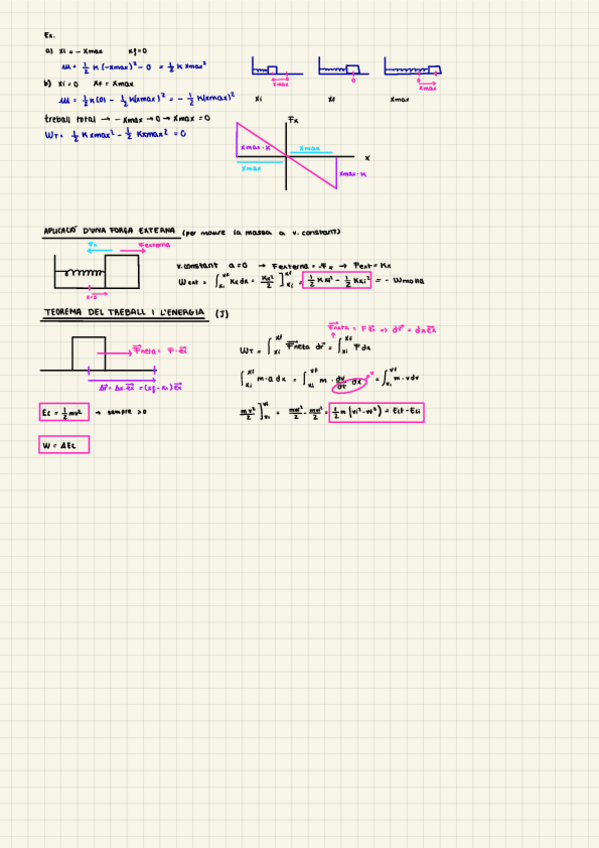 Ex.
a) xi = - xmax   xf = 0
W = 1/2 K (-xmax)² - 0 = 1/2 K xmax²
b) xi = 0   xf = xmax
W = 1/2 K(0) - 1/2 K(xmax)² = - 1/2 K(xmax)²
treball total → - xmax → 0 → xmax = 0
WT = 1/2 K xmax² - 1/2 K xmax² = 0
xmax   0   xmax
xi   xf   xmax
Fx
xmax · K   xmax
x
xmax   xmax · K
APLICACIÓ D'UNA FORÇA EXTERNA (per moure la massa a v. constant)
Fx   Fexterna
v. constant a=0 → Fexterna = -Fx → Fext = Kx
Wext = ∫xi^xf Kx dx = Kx²/2 ]xi^xf = 1/2 K xf² - 1/2 K xi² = - Wmolla
x=0
TEOREMA DEL TREBALL I L'ENERGIA (J)
Fneta = F ex ⇒ dr = dx ex
Fneta = F · ex
WT = ∫xi^xf Fneta dr = ∫xi^xf F dx
Δr = Δx · ex = (xf - xi) ex
∫xi^xf m·a dx = ∫xi^xf m · dv/dt dx = ∫vi^vf m·v dv
Ec = 1/2 mv² → sempre >0
mv²/2 ]vi^vf
W = ΔEc